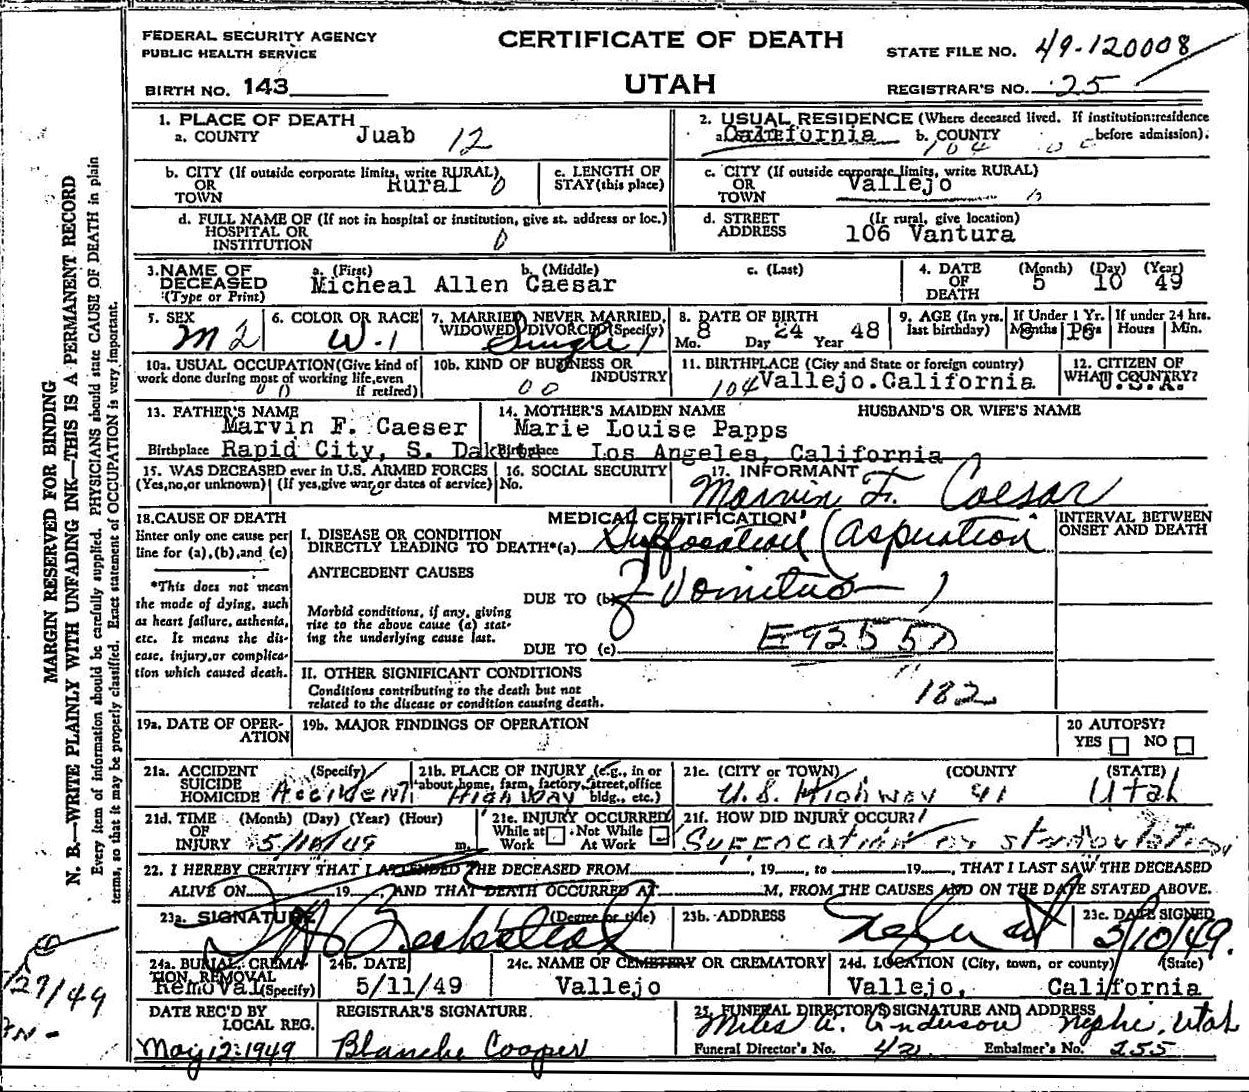 FEDERAL SECURITY AGENCY
PUBLIC HEALTH SERVICE
CERTIFICATE OF DEATH
STATE FILE NO. 49-120008
BIRTH NO. 143
UTAH
REGISTRAR'S NO. 25
1. PLACE OF DEATH
a. COUNTY Juab 12
2. USUAL RESIDENCE (Where deceased lived. If institution:residence before admission).
a. California b. COUNTY 104
b. CITY (If outside corporate limits, write RURAL) OR TOWN Rural 0
c. LENGTH OF STAY (this place)
c. CITY (If outside corporate limits, write RURAL) OR TOWN Vallejo
d. FULL NAME OF (If not in hospital or institution, give st. address or loc.) HOSPITAL OR INSTITUTION 0
d. STREET ADDRESS (If rural, give location) 106 Vantura
3. NAME OF DECEASED (Type or Print) a. (First) b. (Middle) c. (Last)
Micheal Allen Caesar
4. DATE OF DEATH (Month) (Day) (Year) 5 10 49
5. SEX M 2
6. COLOR OR RACE W-1
7. MARRIED, NEVER MARRIED, WIDOWED, DIVORCED (Specify) Single 1
8. DATE OF BIRTH Mo. 8 Day 24 Year 48
9. AGE (In yrs. last birthday) If Under 1 Yr. Months 8 Days 16 If under 24 hrs. Hours Min.
10a. USUAL OCCUPATION (Give kind of work done during most of working life, even if retired)
10b. KIND OF BUSINESS OR INDUSTRY 00
11. BIRTHPLACE (City and State or foreign country) 104 Vallejo.California
12. CITIZEN OF WHAT COUNTRY? U.S.A.
13. FATHER'S NAME Marvin F. Caeser
Birthplace Rapid City, S. Dakota
14. MOTHER'S MAIDEN NAME Marie Louise Papps
Birthplace Los Angeles, California
HUSBAND'S OR WIFE'S NAME
15. WAS DECEASED ever in U.S. ARMED FORCES (Yes,no,or unknown) (If yes,give war or dates of service)
16. SOCIAL SECURITY No.
17. INFORMANT Marvin F. Caesar
18. CAUSE OF DEATH
Enter only one cause per line for (a),(b),and (c)
*This does not mean the mode of dying, such as heart failure, asthenia, etc. It means the disease, injury,or complication which caused death.
MEDICAL CERTIFICATION
INTERVAL BETWEEN ONSET AND DEATH
I. DISEASE OR CONDITION DIRECTLY LEADING TO DEATH*(a) Suffocation (aspiration
ANTECEDENT CAUSES
DUE TO (b) of Vomitus )
Morbid conditions, if any, giving rise to the above cause (a) stating the underlying cause last.
DUE TO (c) E925 50
II. OTHER SIGNIFICANT CONDITIONS
Conditions contributing to the death but not related to the disease or condition causing death.
182
19a. DATE OF OPERATION
19b. MAJOR FINDINGS OF OPERATION
20 AUTOPSY? YES NO
21a. ACCIDENT SUICIDE HOMICIDE (Specify) Accident
21b. PLACE OF INJURY (e.g., in or about home, farm, factory, street, office bldg., etc.) Highway
21c. (CITY or TOWN) (COUNTY (STATE)
U.S. Highway 91 Utah
21d. TIME OF INJURY (Month) (Day) (Year) (Hour) 5/10/49 m.
21e. INJURY OCCURRED While at Work Not While At Work
21f. HOW DID INJURY OCCUR?
Suffocation or
22. I HEREBY CERTIFY THAT I ATTENDED THE DECEASED FROM , 19 , to 19 , THAT I LAST SAW THE DECEASED
ALIVE ON 19 , AND THAT DEATH OCCURRED AT M, FROM THE CAUSES AND ON THE DATE STATED ABOVE.
23a. SIGNATURE (Degree or title)
23b. ADDRESS
23c. DATE SIGNED 5/10/49.
24a. BURIAL, CREMATION, REMOVAL (Specify) Removal
24b. DATE 5/11/49
24c. NAME OF CEMETERY OR CREMATORY Vallejo
24d. LOCATION (City, town, or county) (State) Vallejo, California
DATE REC'D BY LOCAL REG. May 12-1949
REGISTRAR'S SIGNATURE. Blanche Cooper
25. FUNERAL DIRECTOR'S SIGNATURE AND ADDRESS
Miles A. Anderson Nephi, Utah
Funeral Director's No. 42 Embalmer's No. 255
MARGIN RESERVED FOR BINDING
N. B.—WRITE PLAINLY WITH UNFADING INK—THIS IS A PERMANENT RECORD
Every item of information should be carefully supplied. PHYSICIANS should state CAUSE OF DEATH in plain
terms, so that it may be properly classified. Exact statement of OCCUPATION is very important.